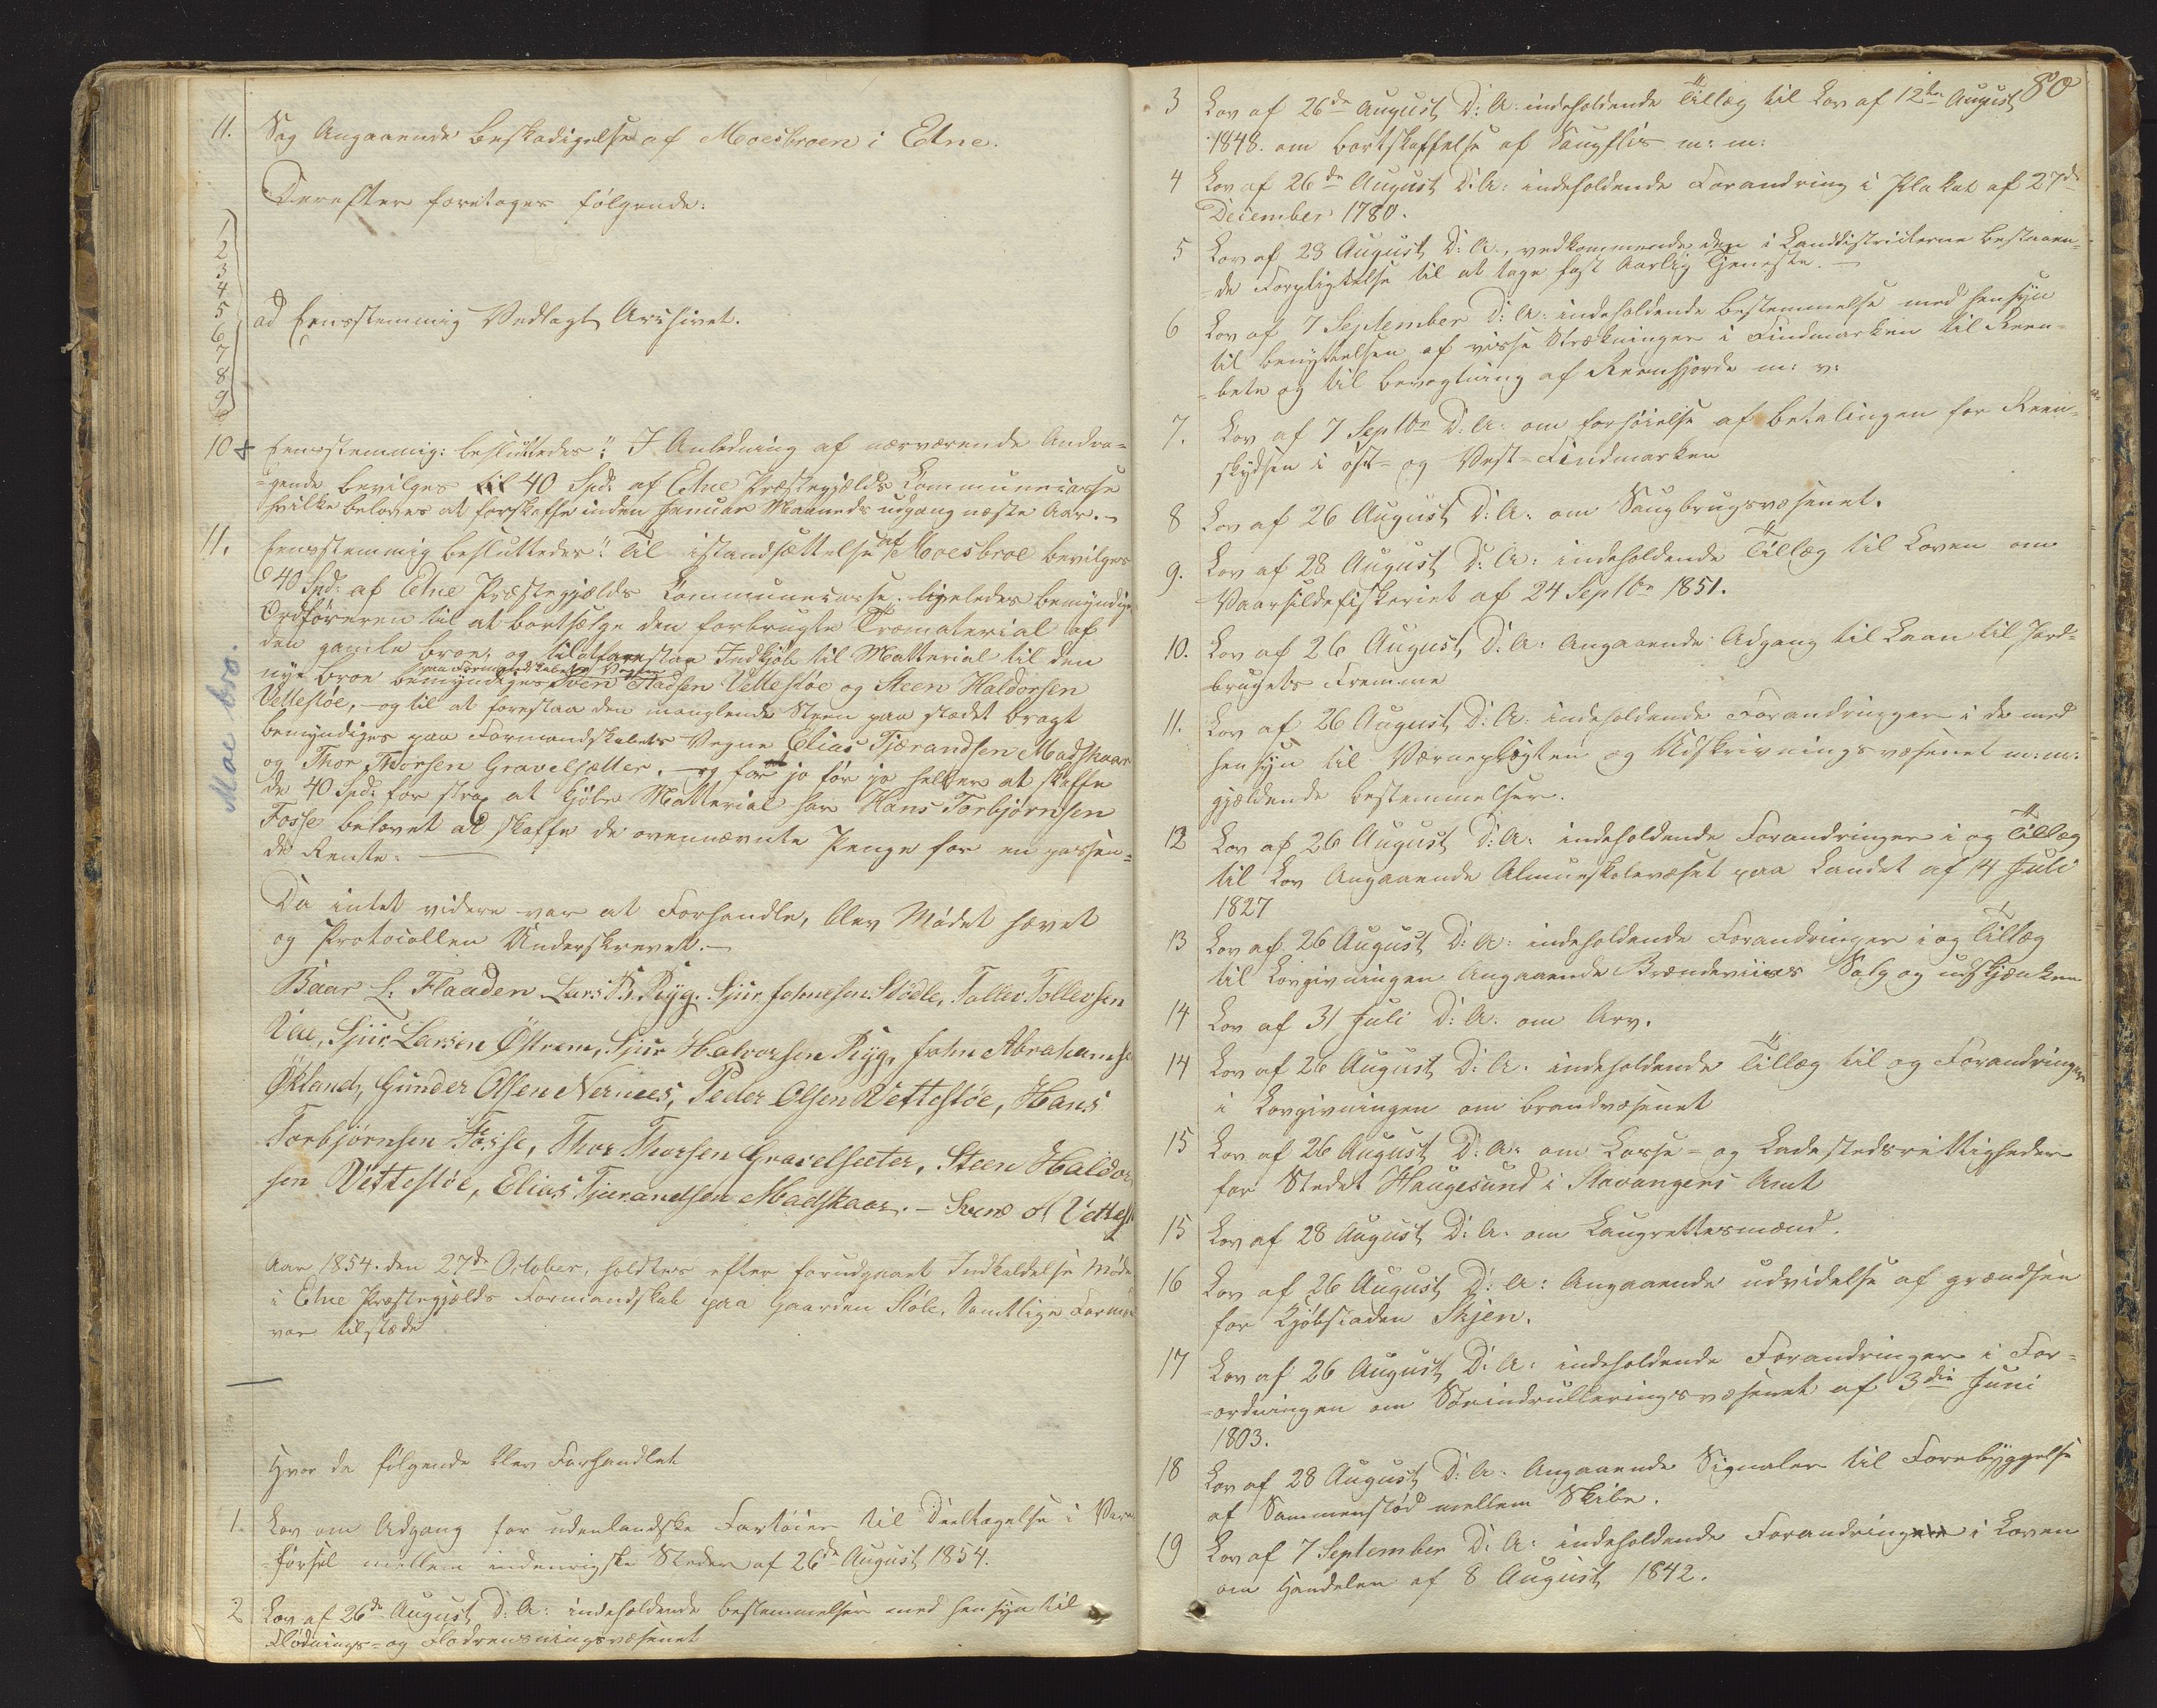 11. Sag Angaaende Beskadigelse af Moesbroen i Etne.
Derefter foretoges følgende:
1
2
3
4
5
6
7
8
9
ad Eensstemmig Vedlagt Archivet.
10 Eensstemmig: besluttedes: "I Anledning af nærværende Andra-
gende bevilges 40 Spd: af Etne Præstegjælds Communecasse
hvilke beloves at forskaffe inden Januar Maaneds udgang næste Aar. -
11. Eensstemmig besluttedes: Til istandsættelse af Moesbroe bevilges
40 Spd: af Etne Præstegjælds Communecasse. ligeledes bemyndiges
Ordføreren til at bortsælge den forbrugte Træmaterial af
den gamle broe, og til at forestaa Indkjøb til Matterial til den
nye broe bemyndiges paa Formandskabets Vegne Sven Vettestøe og Steen Haldorsen
Vettestøe, - og til at forestaa den manglende Steen paa stædet bragt
bemyndiges paa Formandskabets Vegne Elias Tjærandsen Madskaar
og Thor Thorsen Gravelsætter, - og for jo før jo heller at skaffe
de 40 Spd: for strax at kjøbe Matterial har Hans Torbjørnsen
Fosse belovet at skaffe de ovennævnte Penge for en passen-
de Rente. -
Moe bro.
Da intet videre var at Forhandle, blev Mødet hævet
og Protocollen Underskrevet. -
Baar L. Flaaden Lars B. Ryg. Sjur Johnesen Stødle, Tollev Tollevsen
Vae, Sjur Larsen Østrem, Sjur Halvorsen Ryg, John Abrahamse
Økland, Gunder Olsen Nernes, Peder Olsen Vettestøe, Hans
Torbjørnsen Fosse, Thor Thorsen Gravelseter, Steen Haldor
sen Vettestøe, Elias Tjærandsen Madskaar. - Svend Vettest
Aar 1854. den 27de October, holdtes efter forudgaaet Indkaldelse Møde
i Etne Præstegjælds Formandskab paa Gaarden Støle. Samtlige Formæ
var tilstæde
Hvor da følgende blev Forhandlet
1. Lov om Adgang for udenlandske Fartøier til Deeltagelse i Vare
førsel mellem indenrigske Steder af 26de August 1854.
2 Lov af 26de August D: A: indeholdende bestemmelser med hensyn til
Flødnings- og Flødrensningsvæsenet
80
3 Lov af 26de August D: A: indeholdende Tillæg til Lov af 12te August
1848. om bortskaffelse af Saugflis m: m:
4 Lov af 26de August D: A: indeholdende Forandring i Plakat af 27de
December 1780.
5 Lov af 28 August D: A:, vedkommende den i Landdistricterne bestaaen-
de Forpligtelse til at tage fast Aarlig Tjeneste. -
6 Lov af 7 September D: A: indeholdende bestemmelse med hensyn
til benyttelsen af visse Strækninger i Findmarken til Reen-
bete og til bevogtning af Reenhjorde m: v:
7. Lov af 7 Septbr D: A: om forhøielse af betalingen for Reen-
skydsen i øst- og Vest-Findmarken
8 Lov af 26 August D: A: om Saugbrugsvæsenet.
9. Lov af 28 August D: A: indeholdende Tillæg til Loven om
Vaarsildefiskeriet af 24 Septbr 1851.
10. Lov af 26 August D: A: Angaaende Adgang til Laan til Jord-
brugets Fremme
11. Lov af 26 August D: A: indeholdende Forandringer i de med
hensyn til Værnepligten og Udskrivningsvæsenet m: m:
gjældende bestemmelser.
12 Lov af 26 August D: A: indeholdende Forandringer i og Tillæg
til Lov Angaaende Almueskolevæset paa Landet af 14 Juli
1827
13 Lov af 26 August D: A: indeholdende Forandringer i og Tillæg
til Lovgivningen Angaaende Brændeviins Salg og udskjænken
14 Lov af 31 Juli D: A: om Arv.
14 Lov af 26 August D: A: indeholdende Tillæg til og Forandringer
i Lovgivningen om brandvæsenet
15 Lov af 26 August D: A: om Losse- og Ladestedsrettigheder
for Stedet Haugesund i Stavangers Amt
15 Lov af 28 August D: A: om Laugrettesmænd.
16 Lov af 26 August D: A: Angaaende udvidelse af grændsen
for Kjøbstaden Skjen.
17 Lov af 26 August D: A: indeholdende Forandringer i For-
ordningen om Søeindrulleringsvæsenet af 3die Juni
1803.
18 Lov af 28 August D: A: Angaaende Signaler til Forebyggelse
af Sammenstød mellem Skibe.
19 Lov af 7 September D: A: indeholdende Forandring i Loven
om Handelen af 8 August 1842.